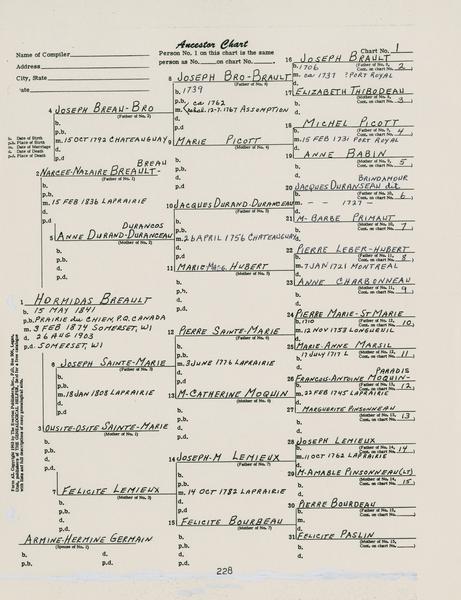 Ancestor Chart
Name of Compiler
Address
City, State
Date
Person No. 1 on this chart is the same
person as No. on chart No.
Chart No. 1
1 HORMIDAS BREAULT
b. 15 MAY 1841
p.b. PRAIRIE du CHIEN, P.Q. CANADA
m. 3 FEB 1874 SOMERSET, WI
d. 26 AUG 1903
p.d. SOMERSET, WI
ARMINE-HERMINE GERMAIN
(Spouse of No. 1)
b. d.
p.b. p.d.
b. Date of Birth
p.b. Place of Birth
m. Date of Marriage
d. Date of Death
p.d. Place of Death
BREAU
2 NARCEE-NAZAIRE BREAULT-
(Father of No. 1)
b.
p.b.
m. 15 FEB 1836 LAPRAIRIE
d.
p.d.
3 OUSITE-OSITE SAINTE-MARIE
(Mother of No. 1)
b.
p.b.
d.
p.d.
4 JOSEPH BREAU-BRO
(Father of No. 2)
b.
p.b.
m. 15 OCT 1792 CHATEAUGUAY
d.
p.d.
DURANCOS
5 ANNE DURAND-DURANCEAU
(Mother of No. 2)
b.
p.b.
d.
p.d.
6 JOSEPH SAINTE-MARIE
(Father of No. 3)
b.
p.b.
m. 18 JAN 1808 LAPRAIRIE
d.
p.d.
7 FELICITE LEMIEUX
(Mother of No. 3)
b.
p.b.
d.
p.d.
8 JOSEPH BRO-BRAULT
(Father of No. 4)
b. 1739
p.b.
m. ca 1762
12-7-1767 ASSOMPTION
d.
p.d.
9 MARIE PICOTT
(Mother of No. 4)
b.
p.b.
d.
p.d.
10 JACQUES DURAND-DURANCEAU
(Father of No. 5)
b.
p.b.
m. 26 APRIL 1756 CHATEAUGUAY
d.
p.d.
11 MARIE-MAG. HUBERT
(Mother of No. 5)
b.
p.b.
d.
p.d.
12 PIERRE SAINTE-MARIE
(Father of No. 6)
b.
p.b.
m. 3 JUNE 1776 LAPRAIRIE
d.
p.d.
13 M-CATHERINE MOQUIN
(Mother of No. 6)
b.
p.b.
d.
p.d.
14 JOSEPH-M LEMIEUX
(Father of No. 7)
b.
p.b.
m. 14 OCT 1782 LAPRAIRIE
d.
p.d.
15 FELICITE BOURBEAU
(Mother of No. 7)
b.
p.b.
d.
p.d.
16 JOSEPH BRAULT
(Father of No. 8, Cont. on chart No. 2)
b. 1706
m. ca 1737 ?PORT ROYAL
d.
17 ELIZABETH THIBODEAU
(Mother of No. 8, Cont. on chart No. 3)
b.
d.
18 MICHEL PICOTT
(Father of No. 9, Cont. on chart No. 4)
b.
m. 15 FEB 1731 PORT ROYAL
d.
19 ANNE BABIN
(Mother of No. 9, Cont. on chart No. 5)
b.
d.
BRINDAMOUR
20 JACQUES DURANSEAU dit
(Father of No. 10, Cont. on chart No. 6)
b.
m. - - 1727 -
d.
21 M-BARBE PRIMAUT
(Mother of No. 10, Cont. on chart No. 7)
b.
d.
22 PIERRE LEBER-HUBERT
(Father of No. 11, Cont. on chart No. 8)
b.
m. 7 JAN 1721 MONTREAL
d.
23 ANNE CHARBONNEAU
(Mother of No. 11, Cont. on chart No. 9)
b.
d.
24 PIERRE MARIE-ST MARIE
(Father of No. 12, Cont. on chart No. 10)
b. 1710
m. 12 NOV 1753 LONGUEUIL
d.
25 MARIE-ANNE MARSIL
(Mother of No. 12, Cont. on chart No. 11)
b. 17 JULY 1717 L
d.
PARADIS
26 FRANCOIS-ANTOINE MOQUIN-
(Father of No. 13, Cont. on chart No. 12)
b.
m. 22 FEB 1745 LAPRAIRIE
d.
27 MARGUERITE PINSONNEAU
(Mother of No. 13, Cont. on chart No. 13)
b.
d.
28 JOSEPH LEMIEUX
(Father of No. 14, Cont. on chart No. 14)
b.
m. 11 OCT 1762 LAPRAIRIE
d.
29 M-AMABLE PINSONNEAU(LT)
(Mother of No. 14, Cont. on chart No. 15)
b.
d.
30 PIERRE BOURDEAU
(Father of No. 15, Cont. on chart No.)
b.
m.
d.
31 FELICITE PASLIN
(Mother of No. 15, Cont. on chart No.)
b.
d.
228